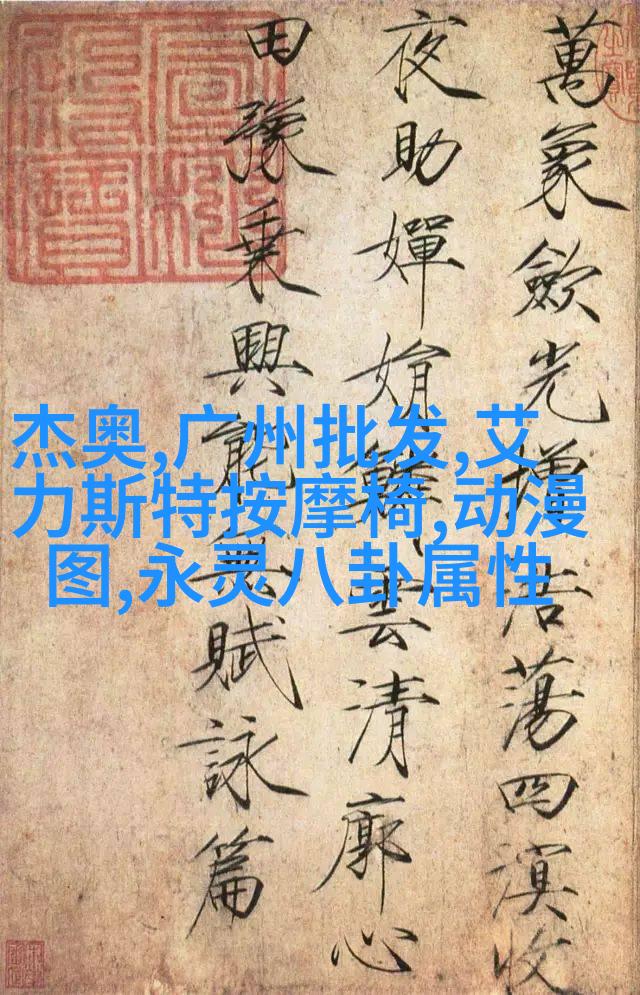 萬象歛光增浩蕩四溟收
夜助嬋娟鱗雲清廓心
田豫乗興能無賦詠篇
杰奥,广州批发,艾
力斯特按摩椅,动漫
图,永灵八卦属性